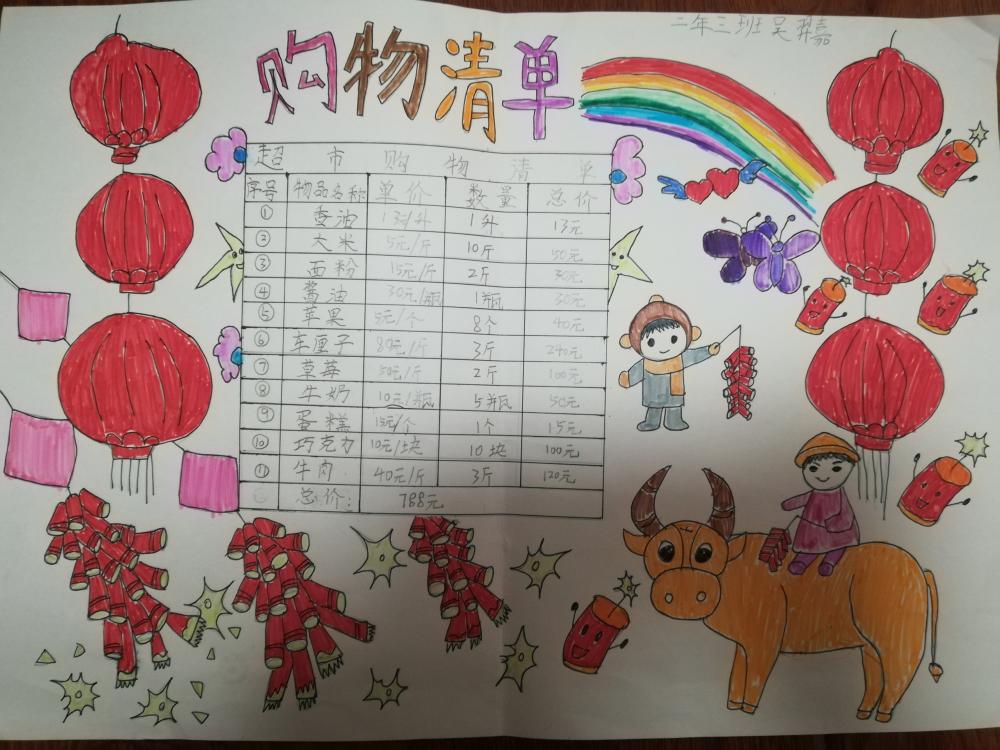 二年三班吴羿嘉
购物清单
超市购物清单
序号 物品名称 单价 数量 总价
① 香油 13元/升 1升 13元
② 大米 5元/斤 10斤 50元
③ 面粉 15元/斤 2斤 30元
④ 酱油 30元/瓶 1瓶 30元
⑤ 苹果 5元/个 8个 40元
⑥ 车厘子 80元/斤 3斤 240元
⑦ 草莓 50元/斤 2斤 100元
⑧ 牛奶 10元/瓶 5瓶 50元
⑨ 蛋糕 15元/个 1个 15元
⑩ 巧克力 10元/块 10块 100元
⑪ 牛肉 40元/斤 3斤 120元
总价: 788元